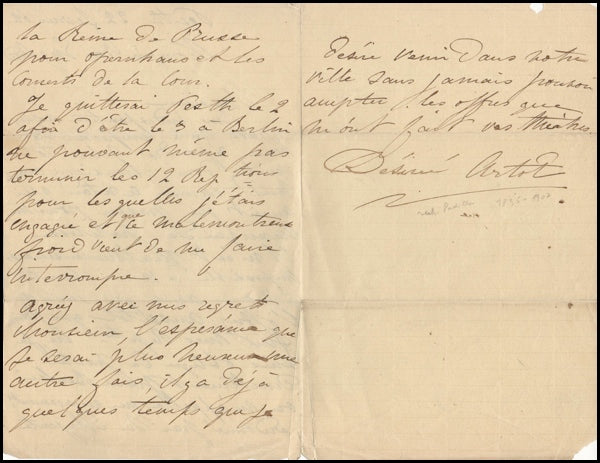 la Reine de Prusse
pour opernhaus et les
Concerts de la Cour.
Je quitterai Pesth le 2
afin d'être le 3 à Berlin
ne pouvant même pas
terminer les 12 Rep.tions
pour les quelles j'étais
engagée et que ce malencontreux
froid vient de me faire
interrompre.
agréez avec mes regrets
Monsieur l'espérance que
je serai plus heureuse une
autre fois, il y a déjà
quelques temps que je
désire venir dans votre
ville sans jamais pouvoir
accepter les offres que
m'ont fait vos théâtres.
Désirée Artôt
1835-1907